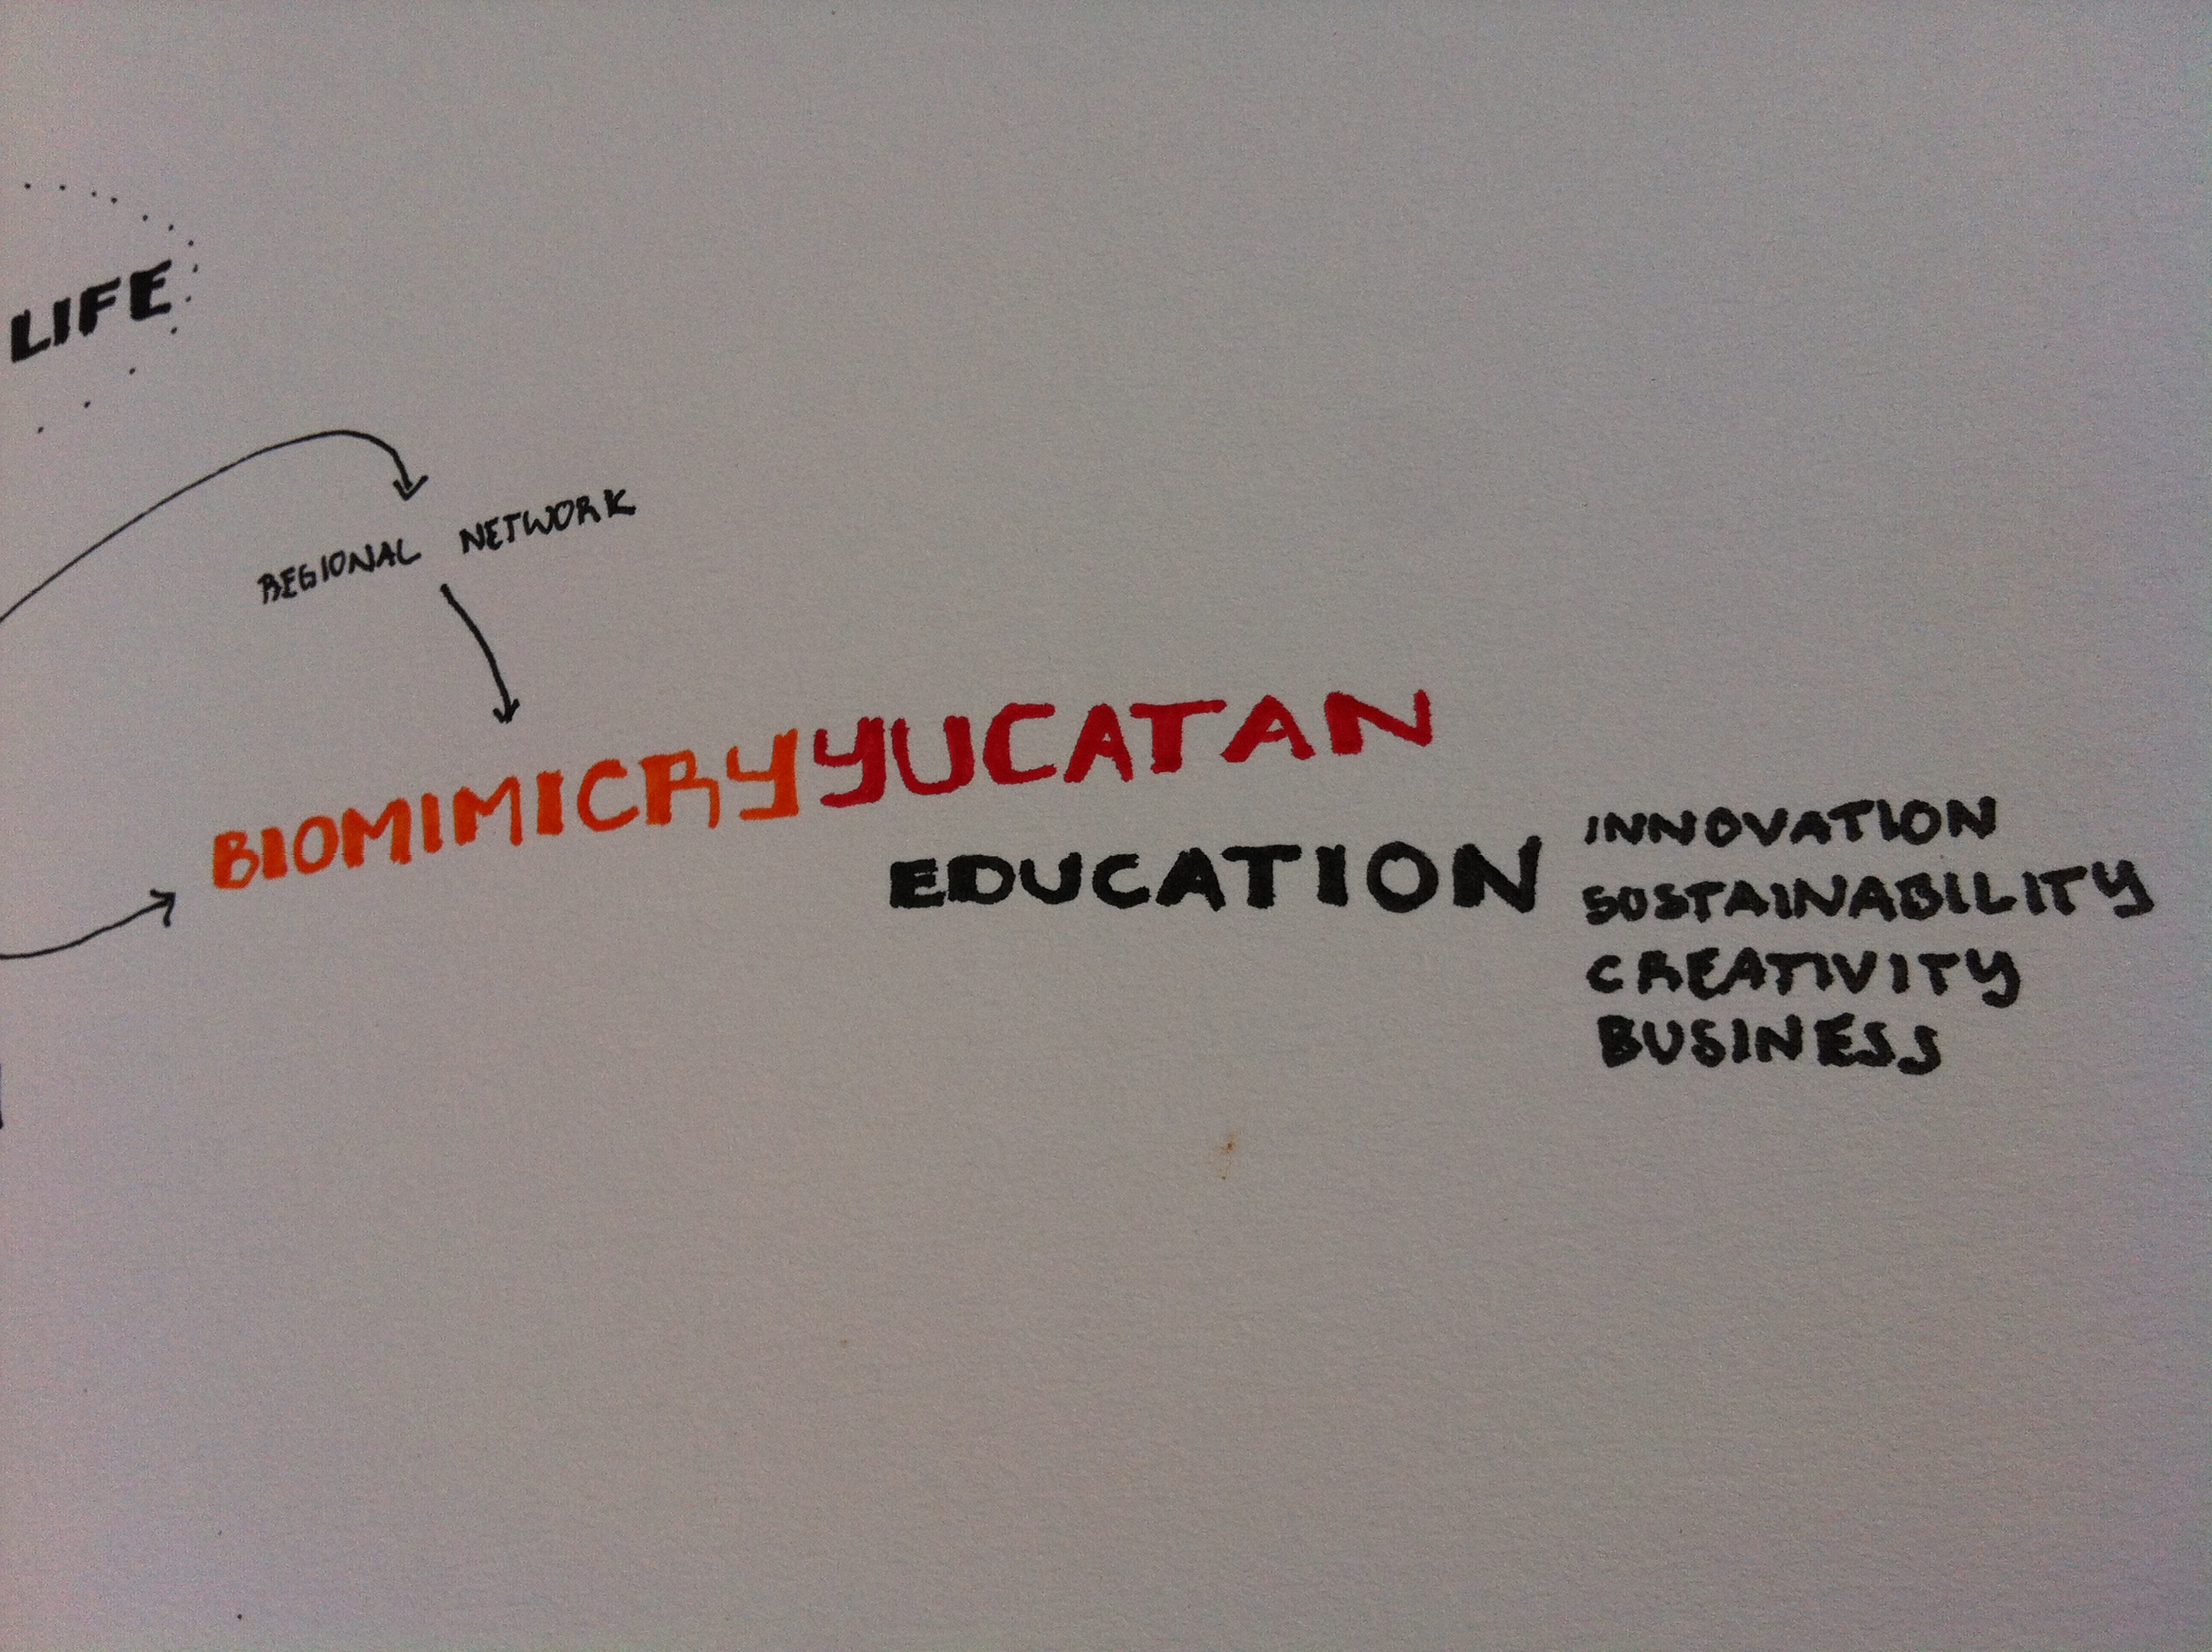 LIFE
REGIONAL NETWORK
BIOMIMICRYYUCATAN
EDUCATION
INNOVATION
SUSTAINABILITY
CREATIVITY
BUSINESS